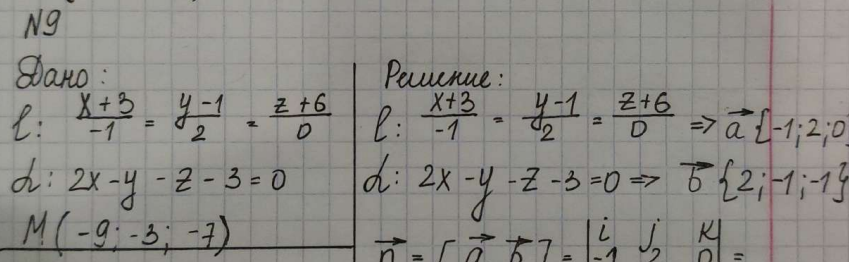 N9
Дано:
l: x+3/-1 = y-1/2 = z+6/0
α: 2x-y-z-3=0
M(-9; -3; -7)
Решение:
l: x+3/-1 = y-1/2 = z+6/0 => a⃗{-1;2;0
α: 2x-y-z-3=0 => b⃗{2;-1;-1}
n⃗ = [a⃗ b⃗] = |i j k| =
-1 2 0